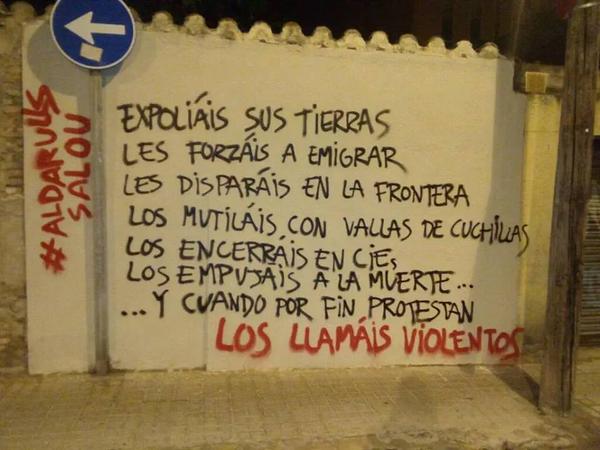 #ALDARULLS
SALOU
EXPOLIÁIS SUS TIERRAS
LES FORZÁIS A EMIGRAR
LES DISPARÁIS EN LA FRONTERA
LOS MUTILÁIS CON VALLAS DE CUCHILLAS
LOS ENCERRÁIS EN CIEs
LOS EMPUJAIS A LA MUERTE...
...Y CUANDO POR FIN PROTESTAN
LOS LLAMÁIS VIOLENTOS